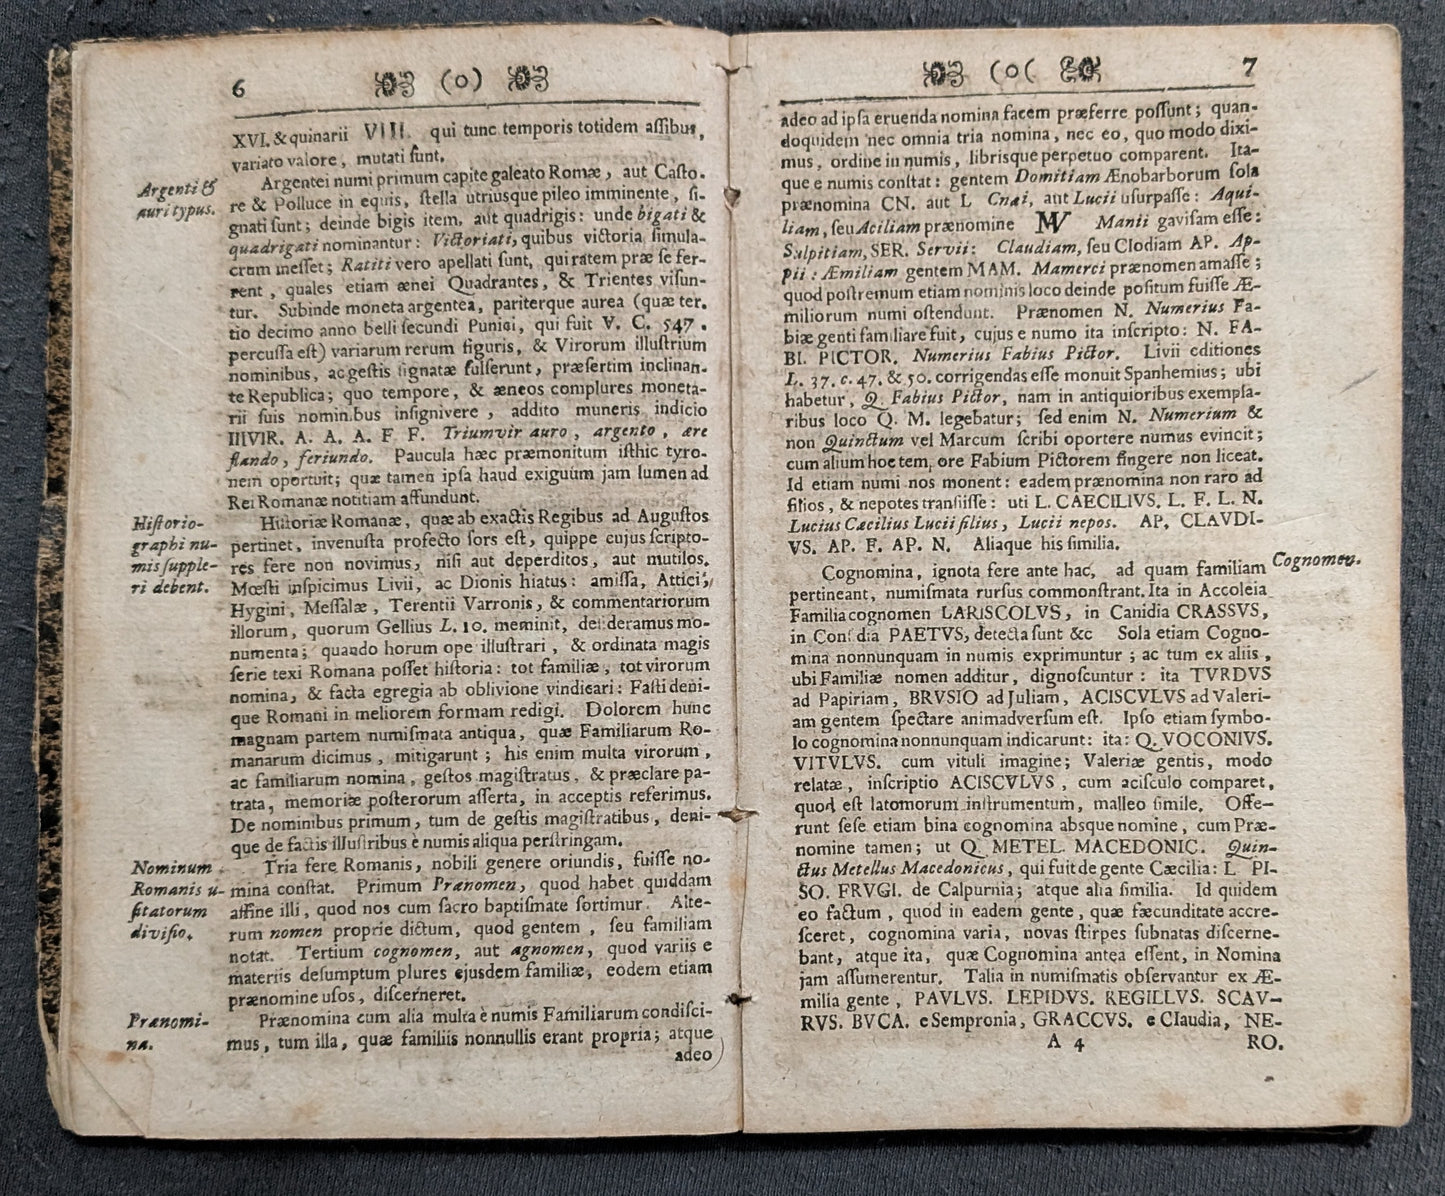 6 (o)
XVI. & quinarii VIII. qui tunc temporis totidem aſſibus,
variato valore, mutati ſunt.
Argenti &
auri typus.
Argentei numi primum capite galeato Romæ, aut Caſto-
re & Polluce in equis, ſtella utriusque pileo imminente, ſi-
gnati ſunt; deinde bigis item, aut quadrigis: unde bigati &
quadrigati nominantur: Victoriati, quibus victoria ſimula-
crum ineſſet; Ratiti vero apellati ſunt, qui ratem præ ſe fer-
rent, quales etiam ænei Quadrantes, & Trientes viſun-
tur. Subinde moneta argentea, pariterque aurea (quæ ter.
tio decimo anno belli ſecundi Punici, qui fuit V. C. 547.
percuſſa eſt) variarum rerum figuris, & Virorum illuſtrium
nominibus, ac geſtis ſignatæ fulſerunt, præſertim inclinan-
te Republica; quo tempore, & æneos complures moneta-
rii ſuis nominibus inſignivere, addito muneris indicio
IIIVIR. A. A. A. F F. Triumvir auro, argento, ære
flando, feriundo. Paucula hæc præmonitum iſthic tyro-
nem oportuit; quæ tamen ipſa haud exiguum jam lumen ad
Rei Romanæ notitiam affundunt.
Hiſtorio-
graphi nu-
mis ſupple-
ri debent.
Hiſtoriæ Romanæ, quæ ab exactis Regibus ad Auguſtos
pertinet, invenuſta profecto ſors eſt, quippe cujus ſcripto-
res fere non novimus, niſi aut deperditos, aut mutilos.
Mœſti inſpicimus Livii, ac Dionis hiatus: amiſſa, Attici,
Hygini, Meſſalæ, Terentii Varronis, & commentariorum
illorum, quorum Gellius L. 10. meminit, deſideramus mo-
numenta; quando horum ope illuſtrari, & ordinata magis
ſerie texi Romana poſſet hiſtoria: tot familiæ, tot virorum
nomina, & facta egregia ab oblivione vindicari: Faſti deni-
que Romani in meliorem formam redigi. Dolorem hunc
magnam partem numiſmata antiqua, quæ Familiarum Ro-
manarum dicimus, mitigarunt; his enim multa virorum,
ac familiarum nomina, geſtos magiſtratus, & præclare pa-
trata, memoriæ poſterorum aſſerta, in acceptis referimus.
De nominibus primum, tum de geſtis magiſtratibus, deni-
que de factis illuſtribus è numis aliqua perſtringam.
Nominum
Romanis u-
ſitatorum
diviſio.
Tria fere Romanis, nobili genere oriundis, fuiſſe no-
mina conſtat. Primum Prænomen, quod habet quiddam
affine illi, quod nos cum ſacro baptiſmate ſortimur. Alte-
rum nomen proprie dictum, quod gentem, ſeu familiam
notat. Tertium cognomen, aut agnomen, quod variis e
materiis deſumptum plures ejusdem familiæ, eodem etiam
prænomine uſos, diſcerneret.
Prænomi-
na.
Prænomina cum alia multa è numis Familiarum condiſci-
mus, tum illa, quæ familiis nonnullis erant propria; atque
adeo
(o( 7
adeo ad ipſa eruenda nomina facem præferre poſſunt; quan-
doquidem nec omnia tria nomina, nec eo, quo modo dixi-
mus, ordine in numis, librisque perpetuo comparent. Ita-
que e numis conſtat: gentem Domitiam Ænobarborum ſola
prænomina CN. aut L Cnæi, aut Lucii uſurpaſſe: Aqui-
liam, ſeu Aciliam prænomine Manii gaviſam eſſe:
Sulpitiam, SER. Servii: Claudiam, ſeu Clodiam AP. Ap-
pii: Æmiliam gentem MAM. Mamerci prænomen amaſſe;
quod poſtremum etiam nominis loco deinde poſitum fuiſſe Æ-
miliorum numi oſtendunt. Prænomen N. Numerius Fa-
biæ genti familiare fuit, cujus e numo ita inſcripto: N. FA-
BI. PICTOR. Numerius Fabius Pictor. Livii editiones
L. 37. c. 47. & 50. corrigendas eſſe monuit Spanhemius; ubi
habetur, Q. Fabius Pictor, nam in antiquioribus exempla-
ribus loco Q. M. legebatur; ſed enim N. Numerium &
non Quinctum vel Marcum ſcribi oportere numus evincit;
cum alium hoc tempore Fabium Pictorem fingere non liceat.
Id etiam numi nos monent: eadem prænomina non raro ad
filios, & nepotes tranſiiſſe: uti L. CAECILIVS. L. F. L. N.
Lucius Cæcilius Lucii filius, Lucii nepos. AP. CLAVDI-
VS. AP. F. AP. N. Aliaque his ſimilia.
Cognomen.
Cognomina, ignota fere ante hac, ad quam familiam
pertineant, numiſmata rurſus commonſtrant. Ita in Accoleia
Familia cognomen LARISCOLVS, in Canidia CRASSVS,
in Conſidia PAETVS, detecta ſunt &c Sola etiam Cogno-
mina nonnunquam in numis exprimuntur; ac tum ex aliis,
ubi Familiæ nomen additur, dignoſcuntur: ita TVRDVS
ad Papiriam, BRVSIO ad Juliam, ACISCVLVS ad Valeri-
am gentem ſpectare animadverſum eſt. Ipſo etiam ſymbo-
lo cognomina nonnunquam indicarunt: ita: Q. VOCONIVS.
VITVLVS. cum vituli imagine; Valeriæ gentis, modo
relatæ, inſcriptio ACISCVLVS, cum aciſculo comparet,
quod eſt latomorum inſtrumentum, malleo ſimile. Offe-
runt ſeſe etiam bina cognomina absque nomine, cum Præ-
nomine tamen; ut Q. METEL. MACEDONIC. Quin-
ctus Metellus Macedonicus, qui fuit de gente Cæcilia: L PI-
SO. FRVGI. de Calpurnia; atque alia ſimilia. Id quidem
eo factum, quod in eadem gente, quæ fæcunditate accre-
ſceret, cognomina varia, novas ſtirpes ſubnatas diſcerne-
bant, atque ita, quæ Cognomina antea eſſent, in Nomina
jam aſſumerentur. Talia in numiſmatis obſervantur ex Æ-
milia gente, PAVLVS. LEPIDVS. REGILLVS. SCAV-
RVS. BVCA. e Sempronia, GRACCVS. e Claudia, NE-
A 4 RO.